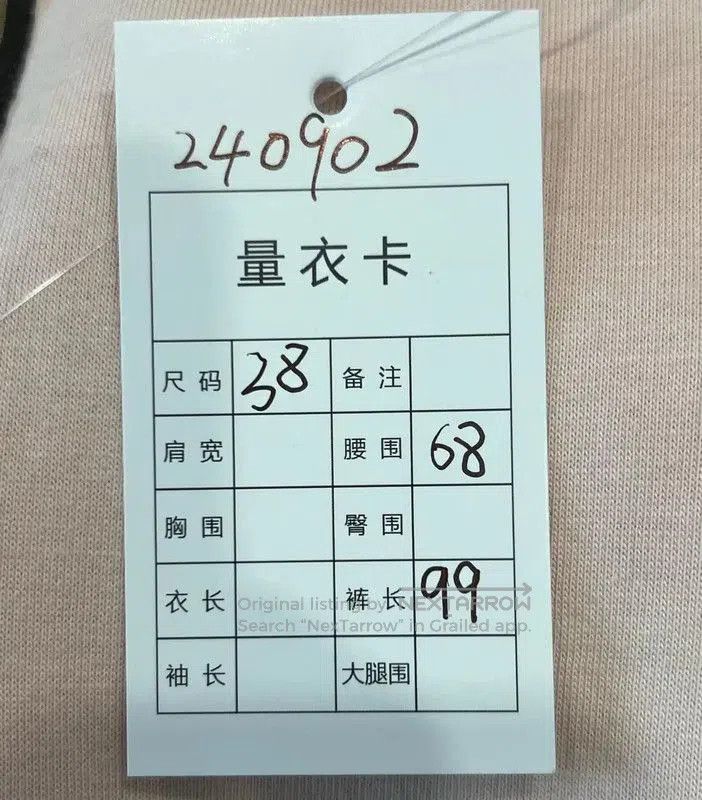 240902
量衣卡
尺码 38 备注
肩宽 腰围 68
胸围 臀围
衣长 裤长 99
Original listing by NEXTARROW
Search "NexTarrow" in Grailed app.
袖长 大腿围